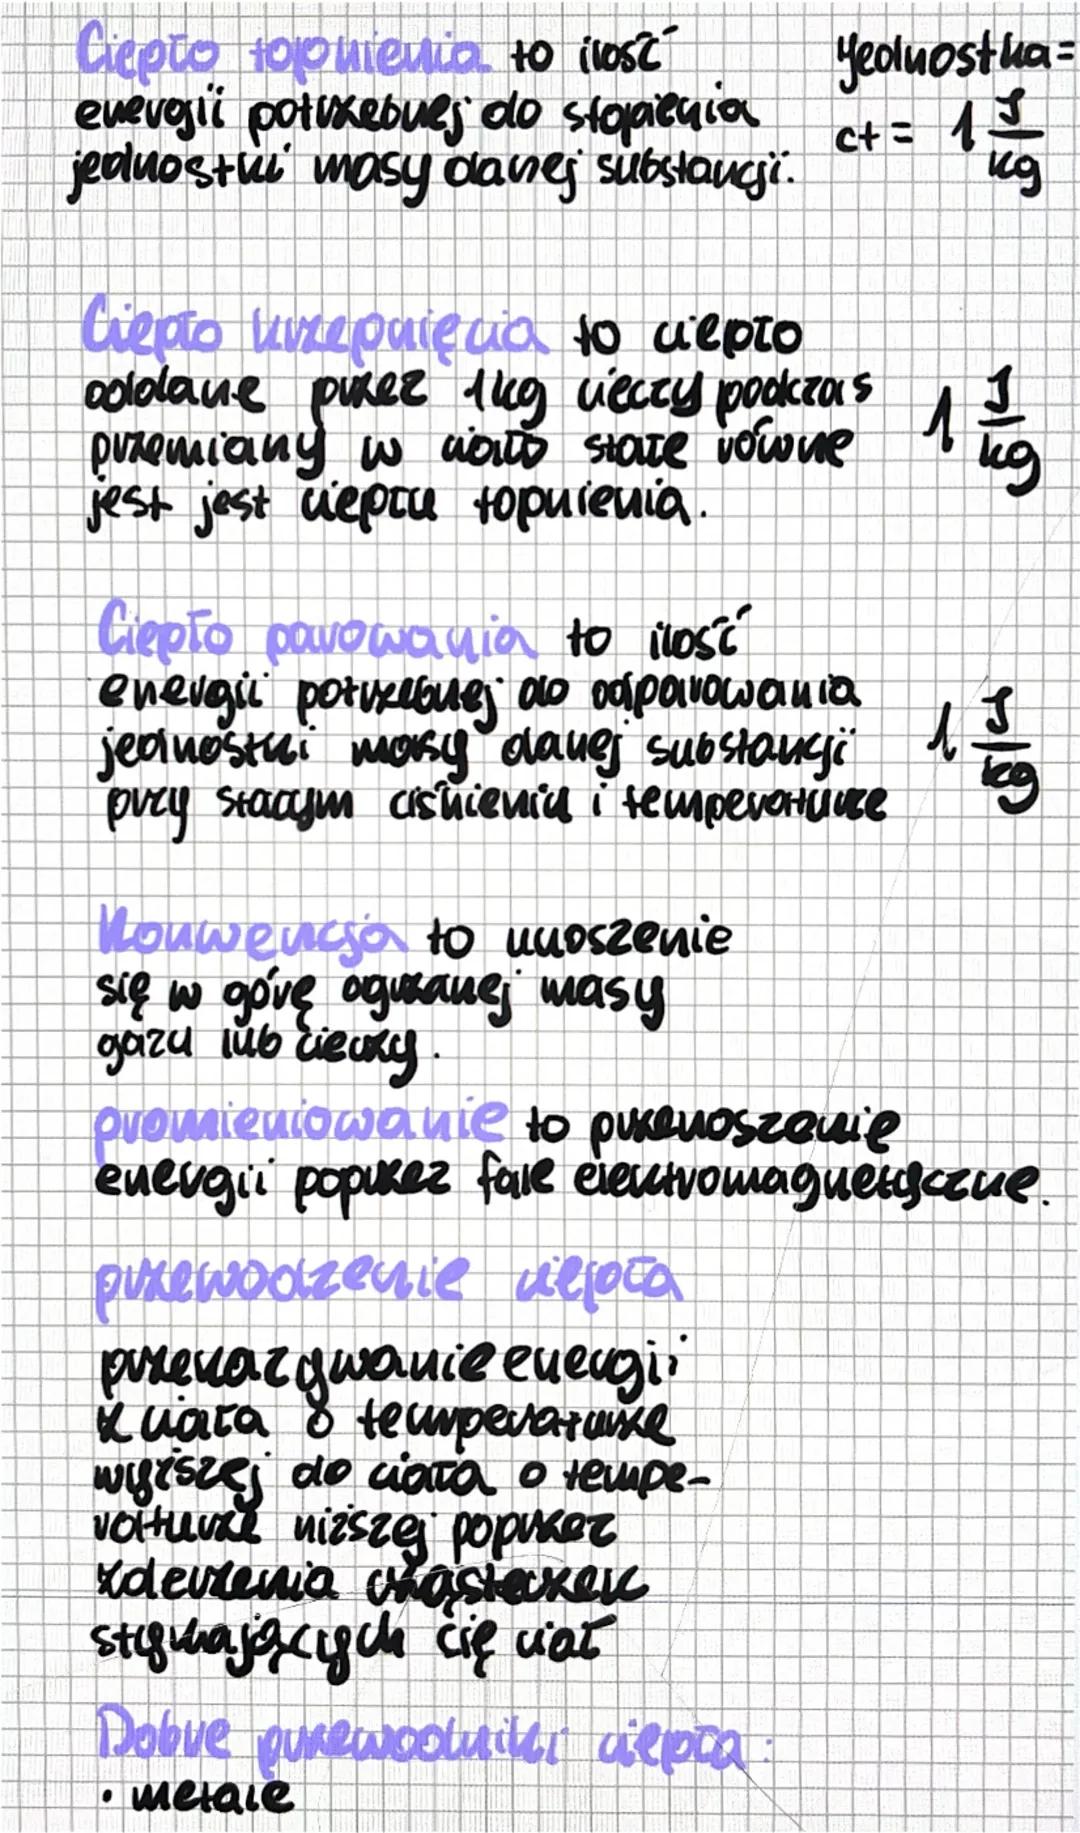 Ciepło topnienia to ilość
energii potrzebnej do stopienia
jednostki masy danej substancji.
Jednostka =
ct = 1 J/kg
Ciepło krzepnięcia to ciepło
oddane przez 1kg cieczy podczas
przemiany w ciało stałe równe
jest jest ciepłu topnienia.
1 J/kg
Ciepło parowania to ilość
energii potrzebnej do odparowania
jednostki masy danej substancji
przy stałym ciśnieniu i temperaturze
1 J/kg
Konwencja to unoszenie
się w górę ogrzanej masy
gazu lub cieczy.
promieniowanie to przenoszenie
energii poprzez fale elektromagnetyczne.
przewodzenie ciepła
przekazywanie energii
z ciała o temperaturze
wyższej do ciała o tempe-
raturze niższej poprzez
zderzenia cząsteczek
stykających się ciał
Dobre przewodniki ciepła:
• metale